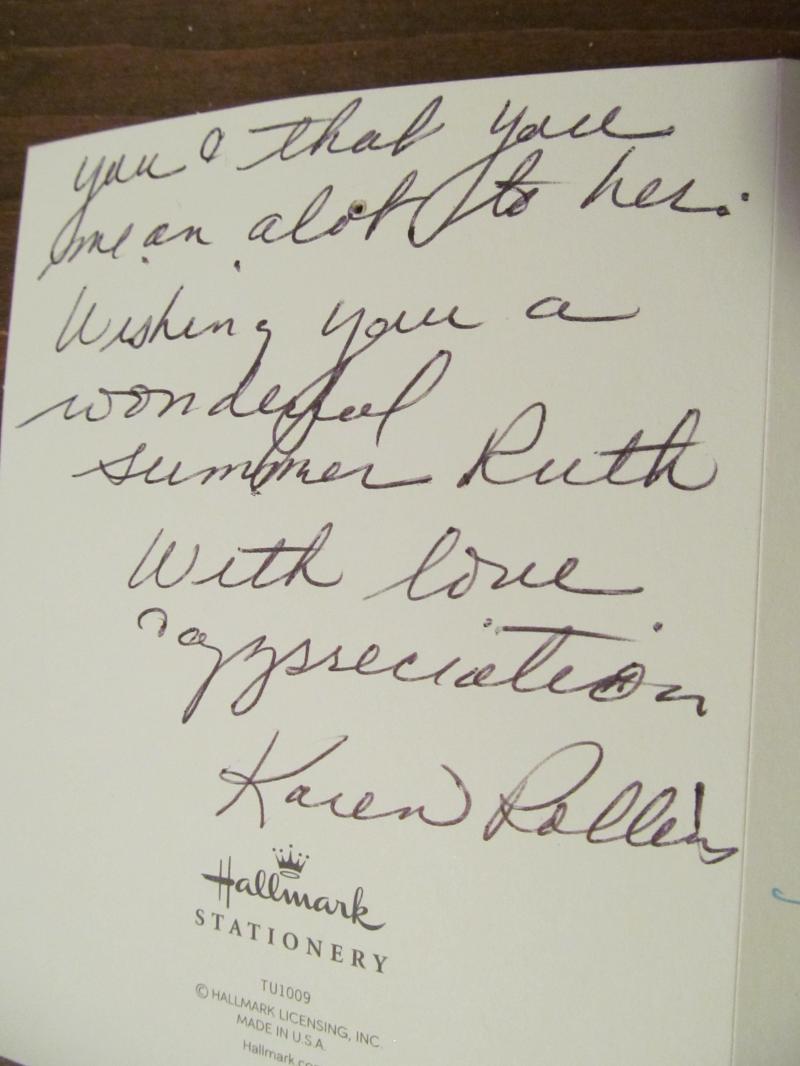 you & that you
mean alot to her.
Wishing you a
wonderful
summer Ruth
With love
& appreciation
Karen Rollins
Hallmark
STATIONERY
TU1009
© HALLMARK LICENSING, INC.
MADE IN U.S.A.
Hallmark.co